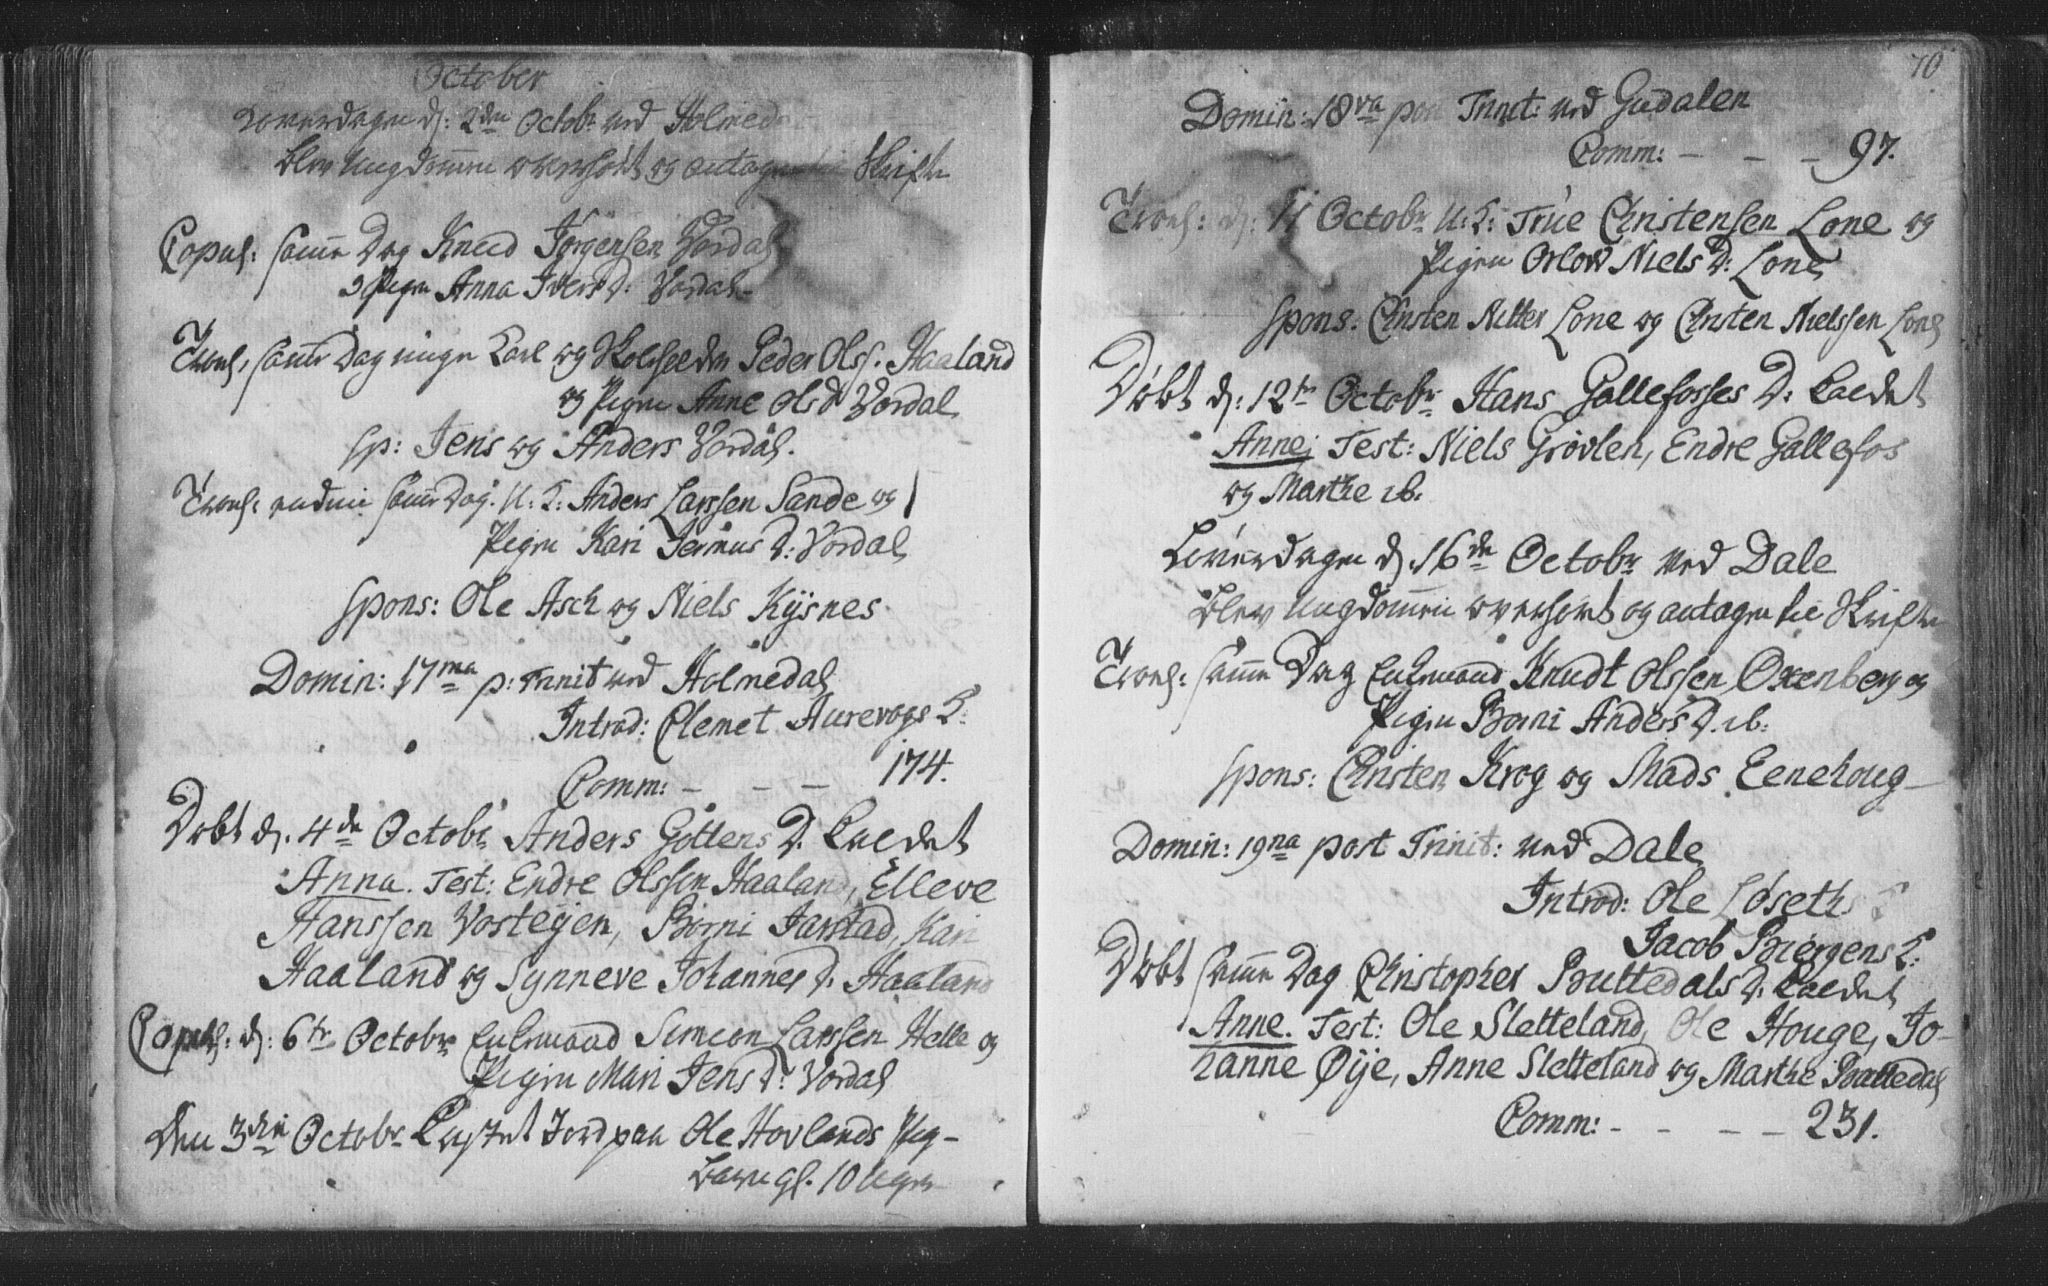 October
Løverdagen d: 2den Octobr ved Holmedal
blev Ungdommen overhørt og antagen til Skrifte
Copul: samme Dag Knud Jørgensen Vordal
og Pigen Anna Ivers D: Vordal
Trol: samme Dag unge Karl og Peder Olss. Haaland
og Pigen Anne Ols D Vordal
sp: Jens og Anders Vordal.
Trol: endnu samme Dag. U: K: Anders Larssen Sande og
Pigen Kari Jermus D: Vordal
Spons: Ole Asch og Niels Kysnes
Domin: 17ma p: Trinit ved Holmedal
Introd: Clemet Aurevogs K:
Comm: - - - 174.
Døbt d. 4de Octobr Anders Gottens D. Kaldet
Anna. Test: Endre Olssen Haaland, Elleve
Hanssen Vostejen, Børni Jarstad, Kari
Haaland og Synneve Johannes D. Haaland
Copul: d: 6te Octobr Enkemand Simeon Larssen Helle og
Pigen Mari Jens D: Vordal
Den 3die Octobr Kastet Jord paa Ole Hovlands Pige-
barn gl. 10 Uger
70
Domin: 18va post Trinit: ved Gudalen
Comm: - - - 97.
Trol: d: 11 Octobr U: K: True Christensen Lone og
Pigen Orlow Niels D: Lone
Spons: Christen Nitter Lone og Christen Nielssen Lone
Døbt d: 12te Octobr Hans Gallefosses D: Kaldet
Anne; Test: Niels Grøvlen, Endre Gallefos
og Marthe ib:
Løverdagen d. 16de Octobr ved Dale
blev Ungdommen overhørt og antagen til Skrifte
Trol: samme Dag Enkemand Knudt Olssen Oxenberg og
Pigen Børni Anders D. ib:
Spons: Christen Krog og Mads Eenehoug
Domin: 19na post Trinit: ved Dale
Introd: Ole Løseth K
Jacob Bjergens K:
Døbt samme Dag Christopher Buttedals D: Kaldet
Anne. Test: Ole Sletteland, Ole Houge, Jo-
hanne Øije, Anne Sletteland og Marthe Buttedal
Comm: - - - - 231.